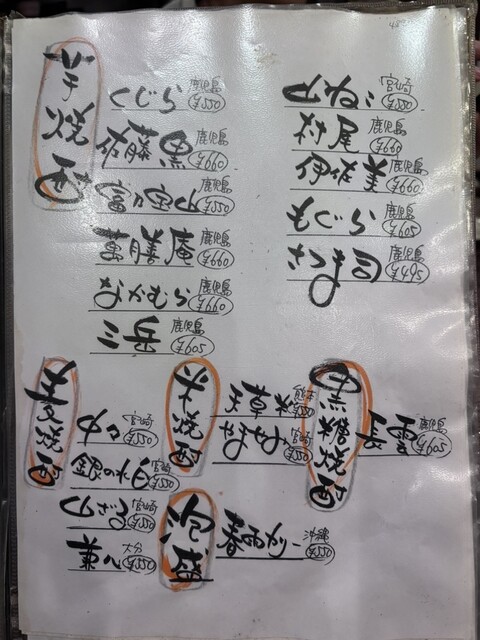 芋焼酎
くじら 鹿児島 ¥550
佐藤黒 鹿児島 ¥660
富乃宝山 鹿児島 ¥550
萬膳庵 鹿児島 ¥660
なかむら 鹿児島 ¥660
三岳 鹿児島 ¥605
山ねこ 宮崎 ¥550
村尾 鹿児島 ¥660
伊佐美 鹿児島 ¥660
もぐら 鹿児島 ¥605
さつま司 鹿児島 ¥495
麦焼酎
中々 宮崎 ¥550
銀の水 宮崎 ¥550
山ざる 宮崎 ¥550
兼八 大分 ¥550
米焼酎
天草 熊本 ¥550
宮崎 ¥550
黒糖焼酎
長雲 鹿児島 ¥605
泡盛
春雨カリー 沖縄 ¥550